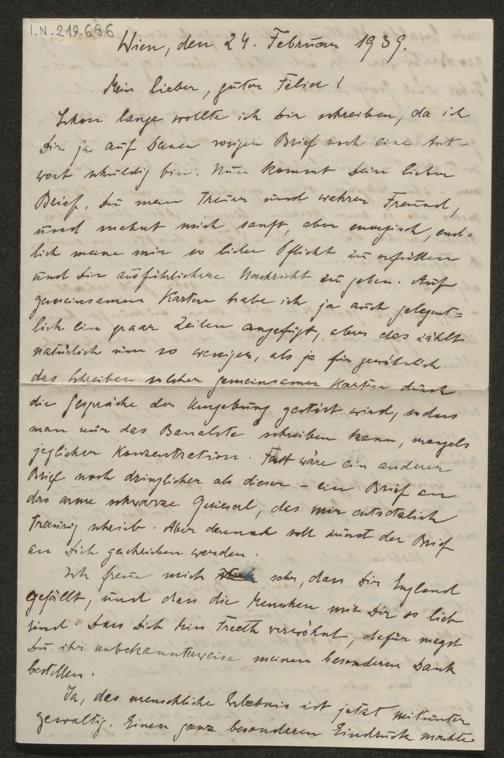 I.N. 219.686
Wien, den 24. Februar 1939.
Mein lieber, guter Felix!
Schon lange wollte ich Dir schreiben, da ich
Dir ja auf Deinen vorigen Brief noch eine Ant-
wort schuldig bin. Nun kommt Dein lieber
Brief, Du mein treuer und wahrer Freund,
und mahnt mich sanft, aber energisch, end-
lich meine mir so liebe Pflicht zu erfüllen
und Dir ausführlichere Nachricht zu geben. Auf
gemeinsamen Karten habe ich ja auch gelegent-
lich ein paar Zeilen angefügt, aber das zählt
natürlich um so weniger, als ja für gewöhnlich
das Schreiben solcher gemeinsamen Karten durch
die Gespräche der Umgebung gestört wird, sodass
man nur das Banalste schreiben kann, mangels
jeglicher Konzentration. Fast wäre ein anderer
Brief noch dringlicher als dieser – ein Brief an
das arme schwarze, das mir entsetzlich
traurig schrieb. Aber dennoch soll zuerst der Brief
an Dich geschrieben werden.
Ich freue mich sehr, dass Dir England
gefällt, und dass die Menschen mit Dir so lieb
sind. Dass Dich Miss verwöhnt, dafür magst
Du ihr unbekannterweise meinen besonderen Dank
bestellen.
Ja, das menschliche Erlebnis ist jetzt mitunter
gewaltig. Einen ganz besonderen Eindruck machte